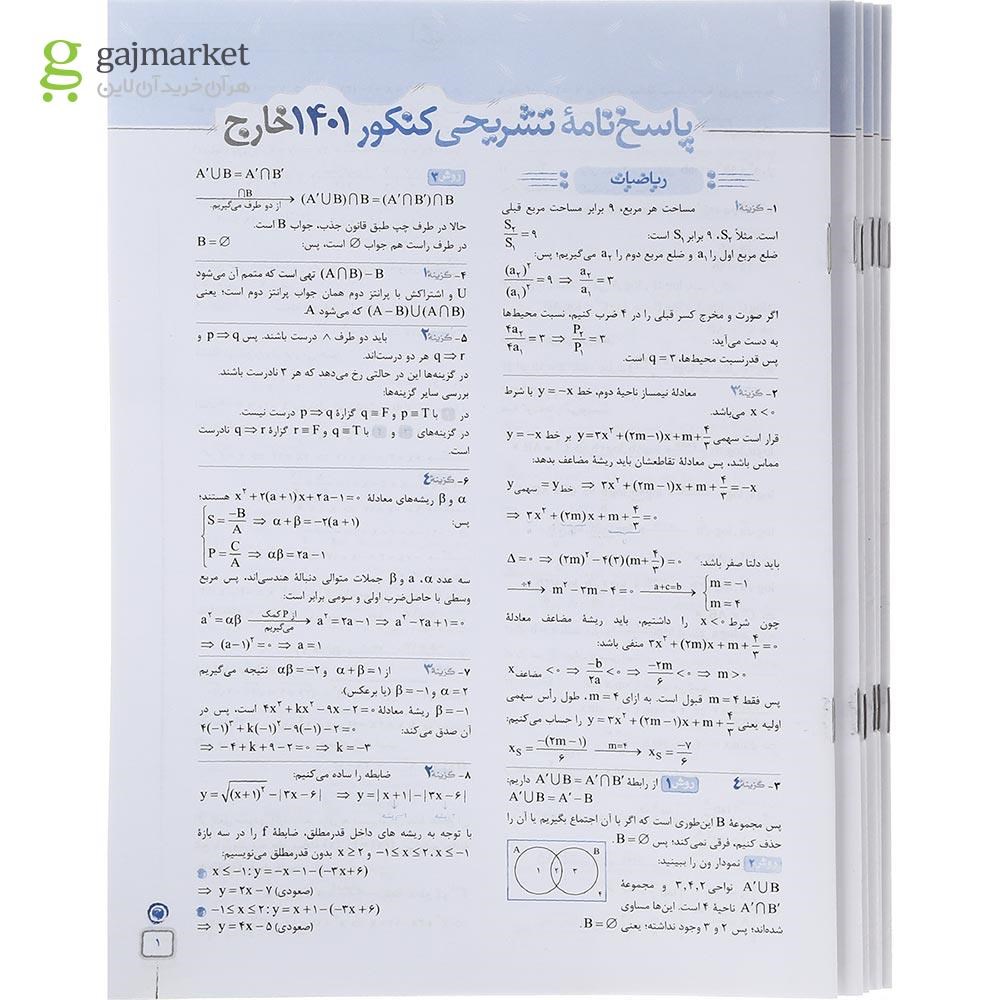 gajmarket
هر آن خرید آن‌لاین
پاسخ‌نامهٔ تشریحی کنکور ۱۴۰۱ خارج
ریاضیات
۱- گزینهٔ ۱ مساحت هر مربع، ۹ برابر مساحت مربع قبلی
است. مثلاً S₂، ۹ برابر S₁ است: S₂/S₁ = ۹
ضلع مربع اول را a₁ و ضلع مربع دوم را a₂ می‌گیریم؛ پس:
(a₂)²/(a₁)² = ۹ ⇒ a₂/a₁ = ۳
اگر صورت و مخرج کسر قبلی را در ۴ ضرب کنیم، نسبت محیط‌ها
به دست می‌آید: ۴a₂/۴a₁ = ۳ ⇒ P₂/P₁ = ۳
پس قدرنسبت محیط‌ها، q = ۳ است.
۲- گزینهٔ ۳ معادلهٔ نیمساز ناحیهٔ دوم، خط y = −x با شرط
x < ۰ می‌باشد.
قرار است سهمی y = ۳x² + (۲m−۱)x + m + ۴/۳ بر خط y = −x
مماس باشد، پس معادلهٔ تقاطعشان باید ریشهٔ مضاعف بدهد:
y سهمی = y خط ⇒ ۳x² + (۲m−۱)x + m + ۴/۳ = −x
⇒ ۳x² + (۲m)x + m + ۴/۳ = ۰
باید دلتا صفر باشد: Δ = ۰ ⇒ (۲m)² − ۴(۳)(m + ۴/۳) = ۰
÷۴ → m² − ۳m − ۴ = ۰ a+c=b → { m = −۱
m = ۴
چون شرط x < ۰ را داشتیم، باید ریشهٔ مضاعف معادلهٔ
۳x² + (۲m)x + m + ۴/۳ = ۰ منفی باشد:
x مضاعف < ۰ ⇒ −b/۲a < ۰ ⇒ −۲m/۶ < ۰ ⇒ m > ۰
پس فقط m = ۴ قبول است. به ازای m = ۴، طول رأس سهمی
اولیه یعنی y = ۳x² + (۲m−۱)x + m + ۴/۳ را حساب می‌کنیم:
x_S = −(۲m−۱)/۶ m=۴ → x_S = −۷/۶
۳- گزینهٔ ۴ روش ۱ از رابطهٔ A′∪B = A′∩B′ داریم:
A′∪B = A′−B
پس مجموعهٔ B این‌طوری است که اگر با آن اجتماع بگیریم یا آن را
حذف کنیم، فرقی نمی‌کند؛ پس B = ∅.
روش ۲ نمودار ون را ببینید:
A′∪B نواحی ۳,۴,۲ و مجموعهٔ
A′∩B′ ناحیهٔ ۴ است. این‌ها مساوی
شده‌اند؛ پس ۲ و ۳ وجود نداشته؛ یعنی B = ∅.
A B
۱ ۲ ۳
۴
روش ۳ A′∪B = A′∩B′
∩B از دو طرف می‌گیریم. → (A′∪B)∩B = (A′∩B′)∩B
حالا در طرف چپ طبق قانون جذب، جواب B است.
در طرف راست هم جواب ∅ است، پس: B = ∅
۴- گزینهٔ ۱ (A∩B)−B تهی است که متمم آن می‌شود
U و اشتراکش با پرانتز دوم همان جواب پرانتز دوم است؛ یعنی
(A−B)∪(A∩B) که می‌شود A.
۵- گزینهٔ ۲ باید دو طرف ∧ درست باشند. پس p⇒q و
q⇒r هر دو درست‌اند.
در گزینه‌ها این در حالتی رخ می‌دهد که هر ۳ نادرست باشند.
بررسی سایر گزینه‌ها:
در ۱ با p≡T و q≡F گزارهٔ p⇒q درست نیست.
در گزینه‌های ۳ و ۴ با q≡T و r≡F گزارهٔ q⇒r نادرست
است.
۶- گزینهٔ ۴
α و β ریشه‌های معادلهٔ x² + ۲(a+۱)x + ۲a − ۱ = ۰ هستند؛
پس: { S = −B/A ⇒ α+β = −۲(a+۱)
P = C/A ⇒ αβ = ۲a−۱
سه عدد α، a و β جملات متوالی دنبالهٔ هندسی‌اند، پس مربع
وسطی با حاصل‌ضرب اولی و سومی برابر است:
a² = αβ از P کمک می‌گیریم → a² = ۲a−۱ ⇒ a² − ۲a + ۱ = ۰
⇒ (a−۱)² = ۰ ⇒ a = ۱
۷- گزینهٔ ۳ از α+β = ۱ و αβ = −۲ نتیجه می‌گیریم
α = ۲ و β = −۱ (یا برعکس).
β = −۱ ریشهٔ معادلهٔ ۴x³ + kx² − ۹x − ۲ = ۰ است، پس در
آن صدق می‌کند: ۴(−۱)³ + k(−۱)² − ۹(−۱) − ۲ = ۰
⇒ −۴ + k + ۹ − ۲ = ۰ ⇒ k = −۳
۸- گزینهٔ ۲ ضابطه را ساده می‌کنیم:
y = √(x+۱)² − |۳x−۶| ⇒ y = |x+۱| − |۳x−۶|
ریشه −۱ ریشه ۲
با توجه به ریشه های داخل قدرمطلق، ضابطهٔ f را در سه بازهٔ
x ≤ −۱، −۱ ≤ x ≤ ۲ و x ≥ ۲ بدون قدرمطلق می‌نویسیم:
x ≤ −۱: y = −x−۱−(−۳x+۶)
⇒ y = ۲x−۷ (صعودی)
−۱ ≤ x ≤ ۲: y = x+۱−(−۳x+۶)
⇒ y = ۴x−۵ (صعودی)
۱